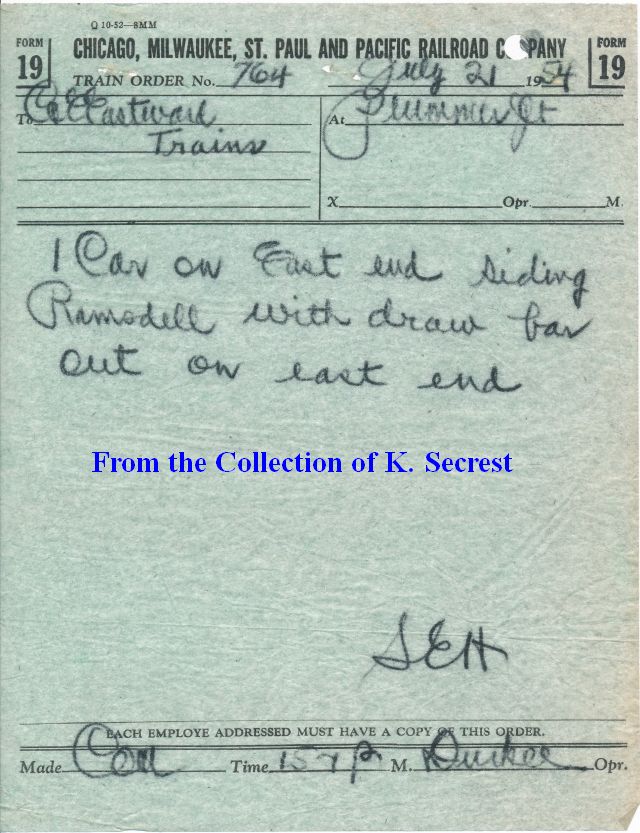 Q 10-52—8MM
FORM 19
CHICAGO, MILWAUKEE, ST. PAUL AND PACIFIC RAILROAD C PANY
FORM 19
TRAIN ORDER No. 764 July 21 1954
To All Eastward
Trains
At Plummer Jct
X Opr. M.
1 Car on East end siding
Ramsdell with draw bar
out on east end
From the Collection of K. Secrest
SEH
EACH EMPLOYE ADDRESSED MUST HAVE A COPY OF THIS ORDER.
Made Com Time 157 P M. Durkee Opr.